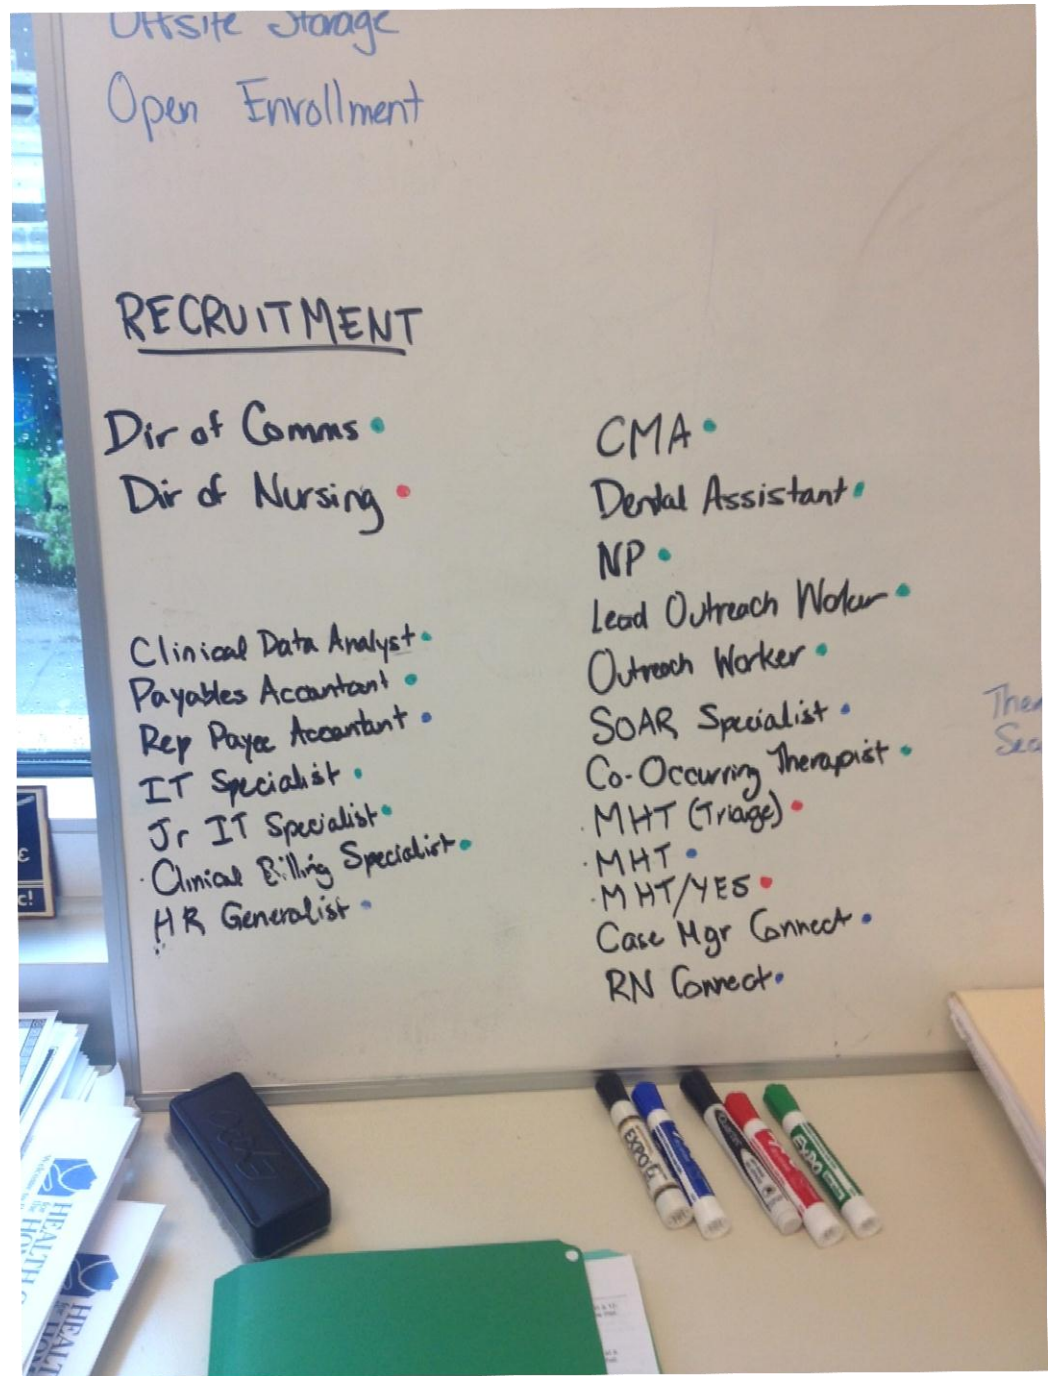 Offsite Storage
Open Enrollment
RECRUITMENT
Dir of Comms
Dir of Nursing
Clinical Data Analyst
Payables Accountant
Rep Payee Accountant
IT Specialist
Jr IT Specialist
Clinical Billing Specialist
HR Generalist
CMA
Dental Assistant
NP
Lead Outreach Worker
Outreach Worker
SOAR Specialist
Co-Occurring Therapist
MHT (Triage)
MHT
MHT/YES
Case Mgr Connect
RN Connect
EXPO
EXPO
EXPO
HEALTH
for the
HEALT
for